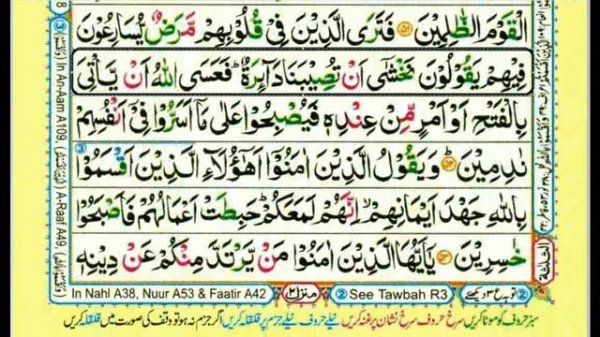 الْقَوْمَ الظّٰلِمِيْنَ ﴿۵۱﴾ فَتَرَى الَّذِيْنَ فِيْ قُلُوْبِهِمْ مَّرَضٌ يُّسَارِعُوْنَ
فِيْهِمْ يَقُوْلُوْنَ نَخْشٰۤى اَنْ تُصِيْبَنَا دَآىِٕرَةٌ ؕ فَعَسَى اللّٰهُ اَنْ يَّاْتِيَ
بِالْفَتْحِ اَوْ اَمْرٍ مِّنْ عِنْدِهٖ فَيُصْبِحُوْا عَلٰى مَاۤ اَسَرُّوْا فِيْۤ اَنْفُسِهِمْ
نٰدِمِيْنَ ﴿۵۲﴾ وَيَقُوْلُ الَّذِيْنَ اٰمَنُوْۤا اَهٰۤؤُلَآءِ الَّذِيْنَ اَقْسَمُوْا
بِاللّٰهِ جَهْدَ اَيْمَانِهِمْ ۙ اِنَّهُمْ لَمَعَكُمْ ؕ حَبِطَتْ اَعْمَالُهُمْ فَاَصْبَحُوْا
خٰسِرِيْنَ ﴿۵۳﴾ يٰۤاَيُّهَا الَّذِيْنَ اٰمَنُوْا مَنْ يَّرْتَدَّ مِنْكُمْ عَنْ دِيْنِهٖ
In An-Aam A109,
A-Raaf A49,
الثلثة
In Nahl A38, Nuur A53 & Faatir A42
منزل ۲
② See Tawbah R3
② توبہ ع ۳ دیکھئے
سبز حروف کو موٹا کریں سرخ حروف سرخ نشان پر غنہ کریں نیلے حروف نیلے جزم پر قلقلہ کریں اگر جزم نہ ہو تو وقف کی صورت میں قلقلہ کریں